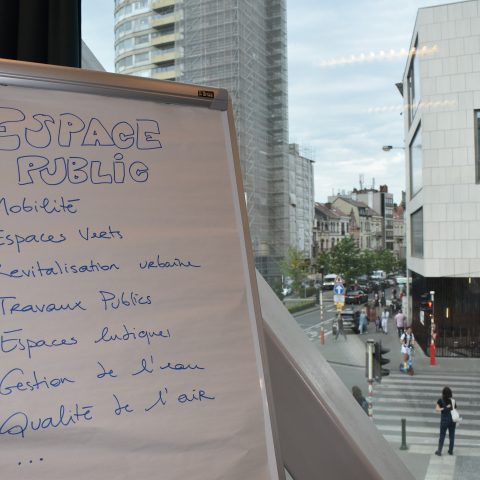 ESPACE
PUBLIC
Mobilité
Espaces Verts
Revitalisation urbaine
Travaux Publics
Espaces ludiques
Gestion de l'eau
Qualité de l'air
...